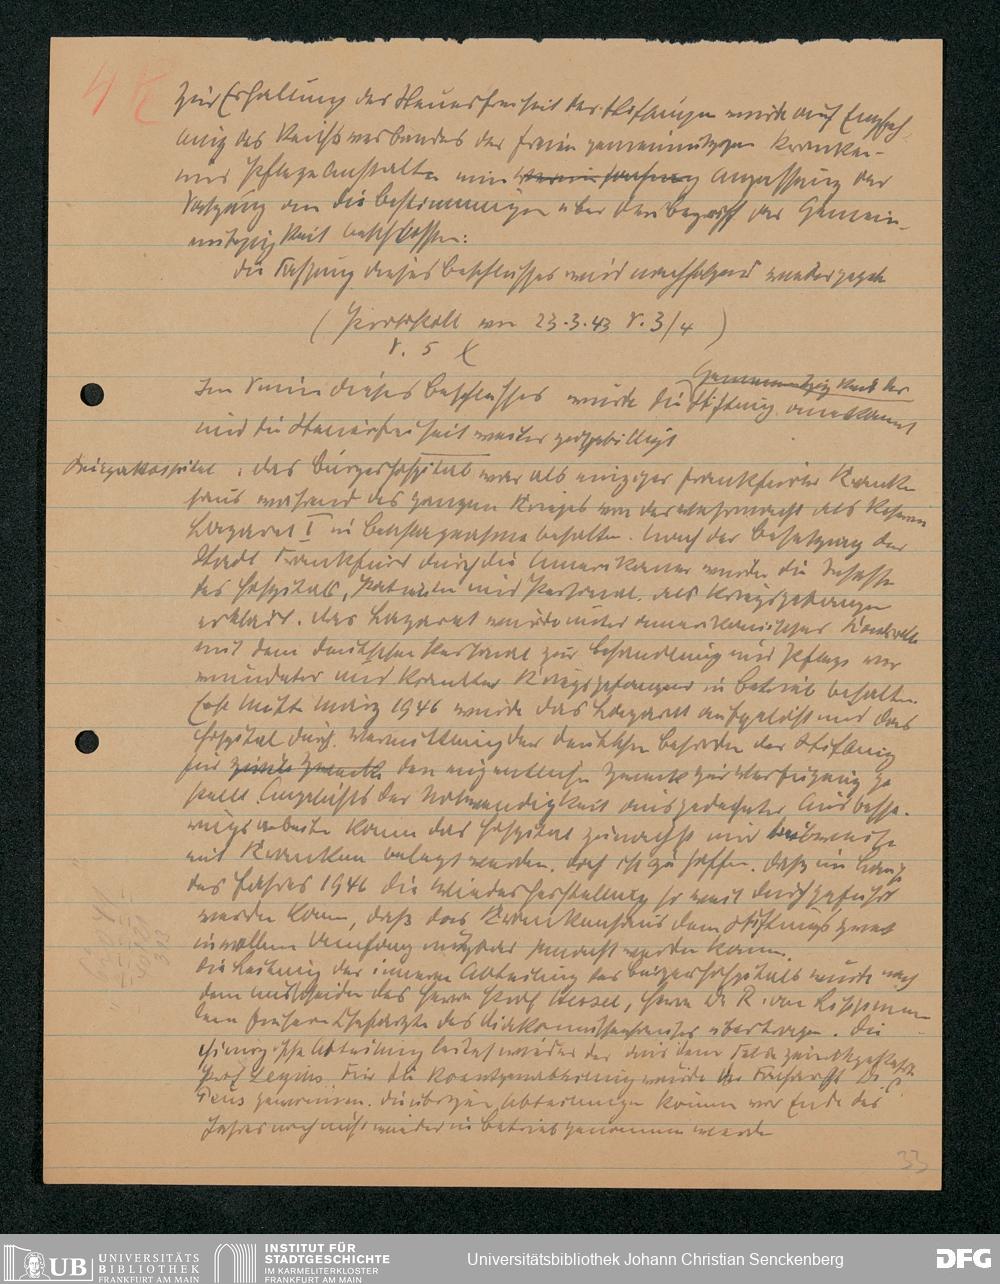 4 R
Zur Erhaltung der Steuerfreiheit der Stiftungen wurde auf Empfeh-
lung des Reichsverbandes der freien gemeinnützigen Kranken-
und Pflegeanstalten eine Anpassung der
Satzung an die Bestimmungen über den Begriff der Gemein-
nützigkeit beschlossen:
Die Fassung dieses Beschlusses wird nachfolgend wiedergegeben
(Protokoll von 23.3.43 S. 3/4)
S. 5 X
Gemeinnützigkeit der
Im Sinne dieses Beschlusses wurde die Stiftung anerkannt
und die Steuerfreiheit weiter gebilligt
Bürgerhospital : Das Bürgerhospital war als einziges Frankfurter Kranken
haus während des ganzen Krieges von der Wehrmacht als Reserve
Lazarett I in Beschlagnahme behalten. Nach der Besetzung der
Stadt Frankfurt durch die Amerikaner wurden die Insassen
des Hospitals, Patienten und Personal, als Kriegsgefangen
erklärt. Das Lazarett wurde unter amerikanischer Kontrolle
mit dem deutschen Personal zur Behandlung und Pflege ver
wundeter und kranker Kriegsgefangener in Betrieb behalten.
Erst Mitte März 1946 wurde das Lazarett aufgelöst und das
Hospital durch Vermittlung der deutschen Behörden der Stiftung
für den eigentlichen Zweck zur Verfügung ge
stellt. Angesichts der Notwendigkeit ausgedehnter Ausbesse-
rungsarbeiten kann das Hospital zunächst nur teilweise
mit Kranken belegt werden. Doch ist zu hoffen, daß im Laufe
des Jahres 1946 die Wiederherstellung so weit durchgeführt
werden kann, daß das Krankenhaus dem Stiftungszweck
in vollem Umfang nutzbar gemacht werden kann.
Die Leitung der inneren Abteilung des Bürgerhospitals wurde nach
dem Ausscheiden des Herrn Prof. Herrn Dr R. von Lippmann
dem früheren Chefarzte des Diakonissenhauses übertragen. Die
chirurgische Abteilung leitet wieder der aus dem Felde zurückgekehrte
Prof. Für die Roentgenabteilung wurde der Facharzt Dr.
gewonnen. Die übrigen Abteilungen können vor Ende des
Jahres noch nicht wieder in Betrieb genommen werden
33
UB UNIVERSITÄTS
BIBLIOTHEK
FRANKFURT AM MAIN
INSTITUT FÜR
STADTGESCHICHTE
IM KARMELITERKLOSTER
FRANKFURT AM MAIN
Universitätsbibliothek Johann Christian Senckenberg
DFG